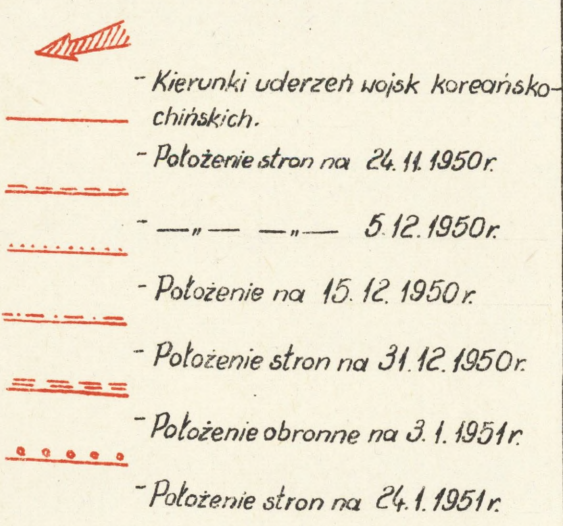 - Kierunki uderzeń wojsk koreańsko-
chińskich.
- Położenie stron na 24.11.1950r.
- —„— —„— 5.12.1950r.
- Położenie na 15.12.1950r.
- Położenie stron na 31.12.1950r.
- Położenie obronne na 3.1.1951r.
- Położenie stron na 24.1.1951r.